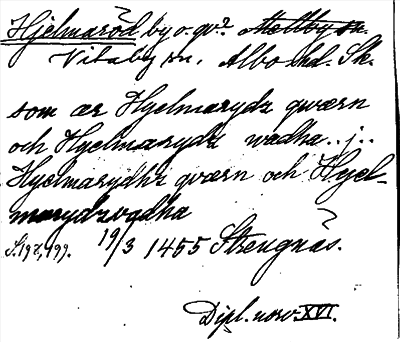 Hjelmaröd by o. gd? Mellby sn.
Vitaby sn, Albo hd. Sk.
som ær Hyelmarydz qwærn
och Hyelmarydz wadha..j..
Hyelmarydhz qværn och Hyel-
marydzvadha
S. 198, 199. 19/3 1455 Strengnäs.
Dipl. norv. XVI.